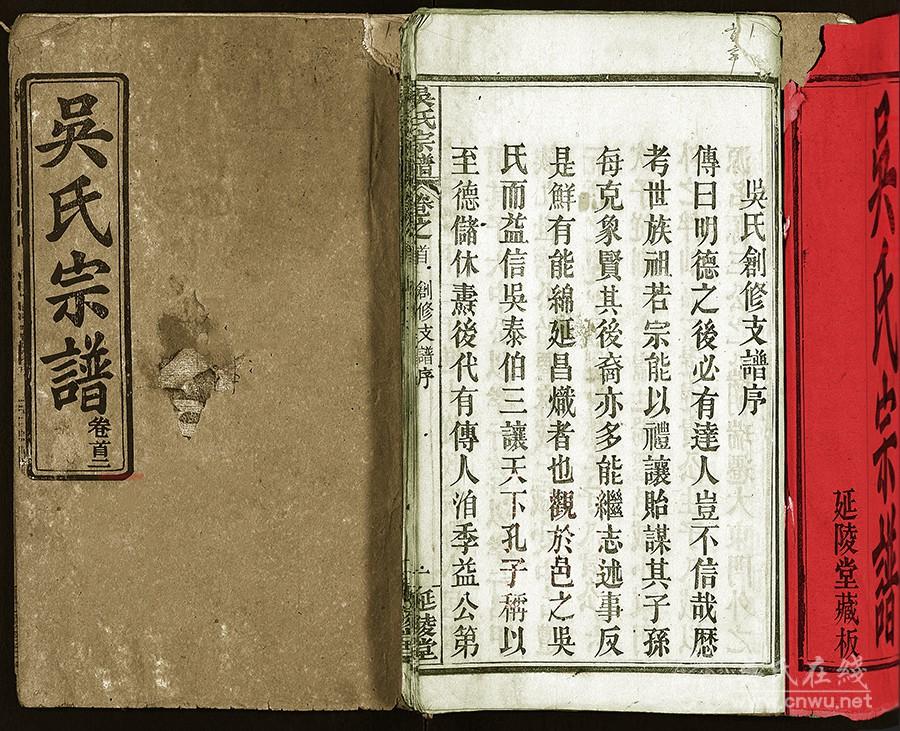 吳氏宗譜
卷首二
吳氏創修支譜序
傳曰明德之後必有達人豈不信哉歷
考世族祖若宗能以禮讓貽謀其子孫
每克象賢其後裔亦多能繼志述事反
是鮮有能綿延昌熾者也觀於邑之吳
氏而益信吳泰伯三讓天下孔子稱以
至德儲休燾後代有傳人洎季益公第
吳氏宗譜 卷之首 創修支譜序 一 延陵堂
吳氏宗譜
延陵堂藏板
在線
cnwu.net